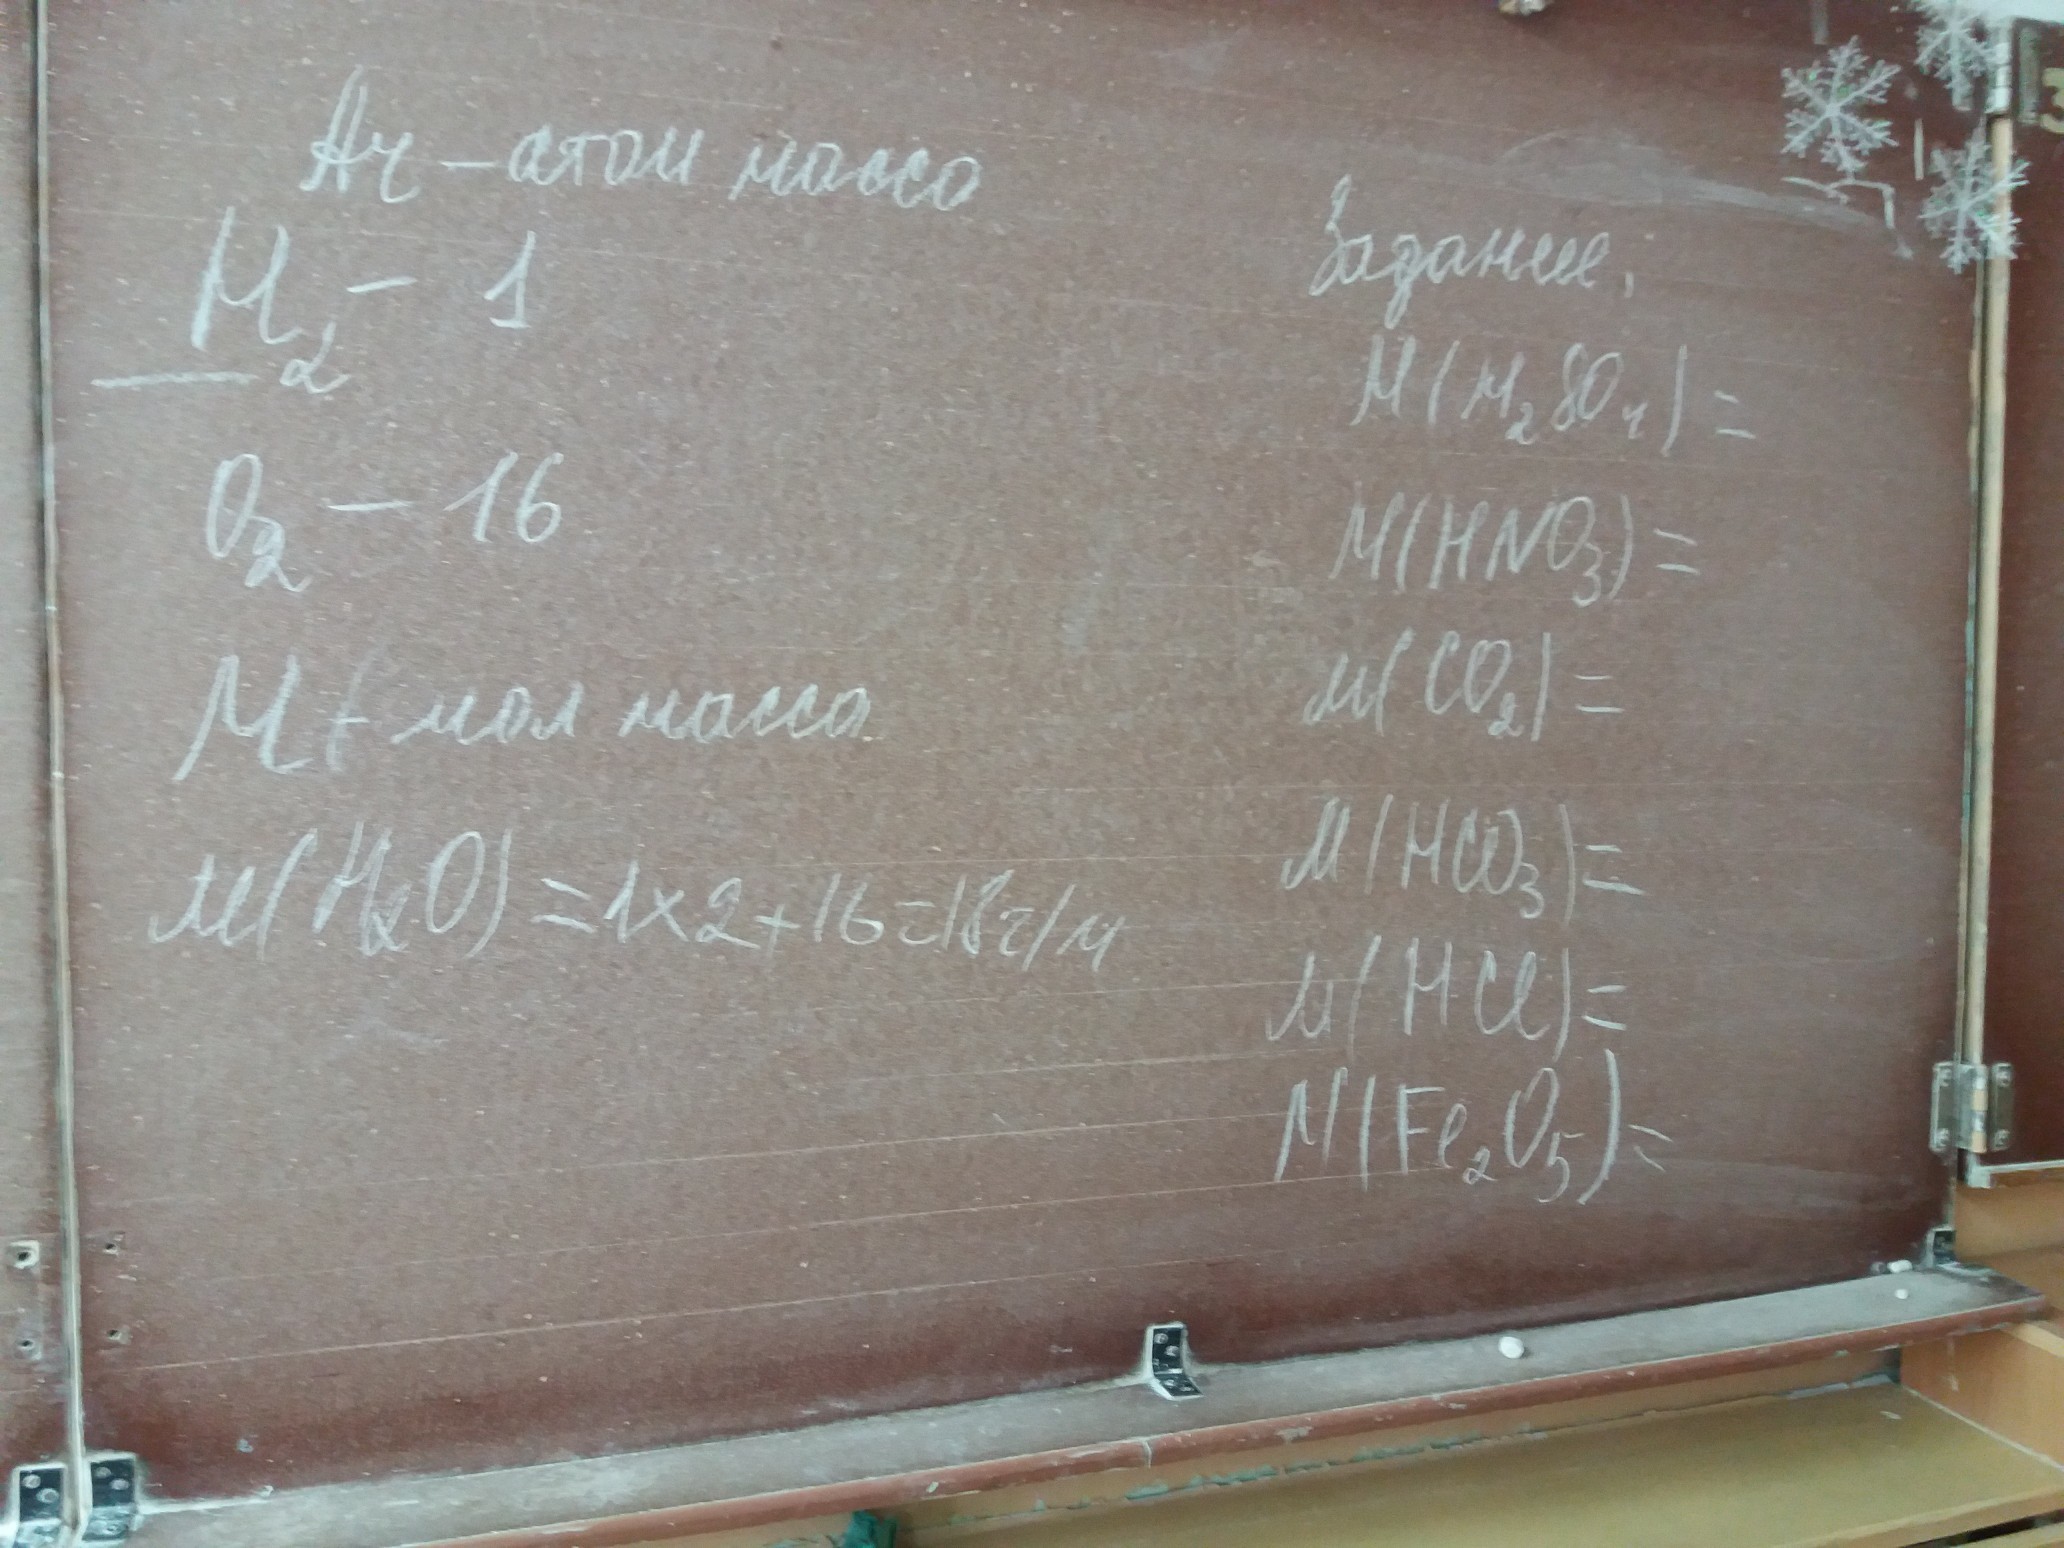 Ar - атом масса
H₂ - 1
O₂ - 16
M - мол масса
M(H₂O) = 1x2+16=18г/м
Задание.
M(H₂SO₄) =
M(HNO₃) =
M(CO₂) =
M(HCO₃) =
M(HCl) =
M(Fe₂O₅) =